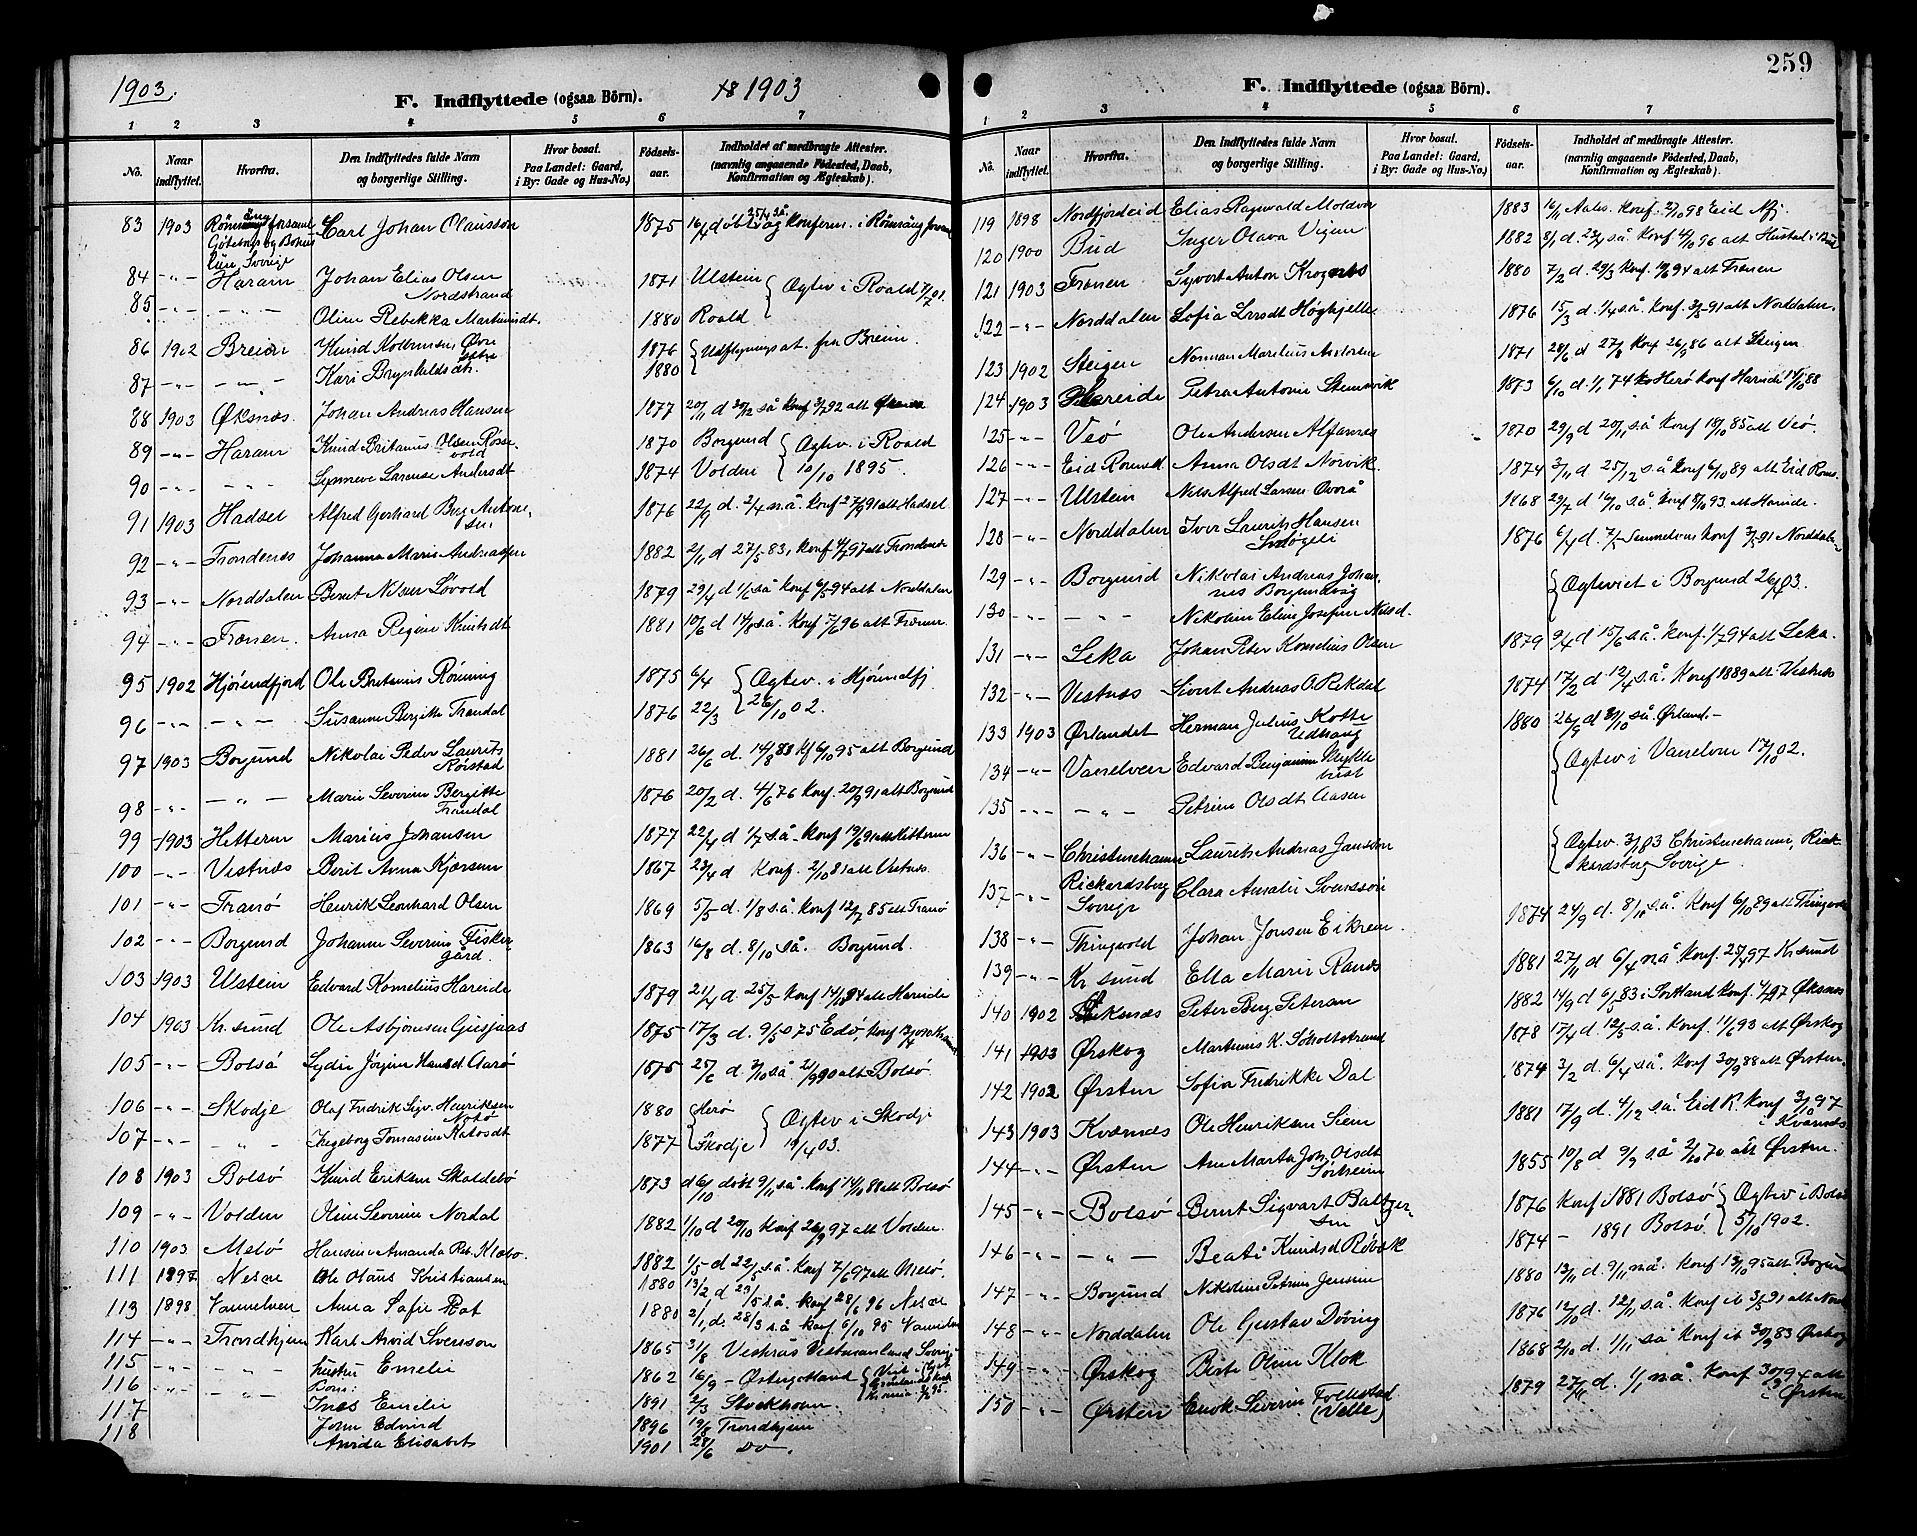 1903.
F. Indflyttede (ogsaa Börn).
1903
1 2 3 4 5 6 7
No. Naar indflyttet. Hvorfra. Den Indflyttedes fulde Navn og borgerlige Stilling. Hvor bosat. Paa Landet: Gaard, i By: Gade og Hus-No.) Födsels-aar. Indholdet af medbragte Attester. (navnlig angaaende Födested, Daab, Konfirmation og Ægteskab).
83 1903 Carl Johan Olausson 1875
Sverige
84 -"- Haram Johan Elias Olsen Nordstrand 1871 Ulstein Ægtev i Roald
85 -"- -"- Oline Rebekka Martinusdt. 1880 Roald
86 1902 Breim Knud 1876 Udflytningsat. fra Breim.
87 -"- -"- Kari Brynhildsdt. 1880
88 1903 Øksnæs Johan Andreas Hansen 1877 20/11 d 30/12 så Konf 3/7 92 alt Øksnes
89 -"- Haram Knud Britanus Olsen Røsevold 1870 Borgund Ægtev. i Roald
90 -"- -"- Synneve Larense Andersdt 1874 Volden 10/10 1895.
91 1903 Hadsel Alfred Gerhard Berg Antonsen 1876 22/9 d. 2/4 n.å. Konf 27/9 91 alt Hadsel
92 -"- Trondenes Johanna Marie Andreassen 1882 2/11 d 27/5 83, Konf 4/7 97 alt Trondenes
93 -"- Norddalen Bernt Nilsen Løvold 1879 29/4 d 1/6 så Konf 6/5 94 alt Norddalen
94 -"- Frænen. Anna Regine Knutsdt 1881 10/6 d 14/8 s.å. Konf 7/6 96 alt Frænen.
95 1902 Hjørendfjord Ole Britanus Rønning 1875 6/4 Ægtev. i Hjørundfj.
96 -"- -"- Susanne Bergitte Trandal 1876 22/3 26/10 02.
97 1903 Borgund Nikolai Peder Laurits Røistad 1881 26/6 d. 14/8 83 Kf 6/10 95 alt Borgund
98 -"- -"- Marie Severine Bergitte Trandal 1876 20/2 d. 4/6 76 Konf. 20/9 91 alt Borgund
99 1903 Hitteren Marius Johansen 1877 22/4 d 1/7 s.å. Konf 13/9 91 alt Hitteren
100 -"- Vestnes Berit Anna Kjærsem 1867 23/4 d Konf. 2/10 81 alt Vestnes
101 -"- Tranø Henrik Leonhard Olsen 1869 5/5 d. 1/8 s.å. Konf 12/7 85 alt Tranø
102 -"- Borgund Johanne Severine Fiskergård. 1863 16/8 d. 8/10 så. Borgund.
103 1903 Ulstein Edvard Kornelius Hareide 1879 21/4 d. 25/5 Konf 14/10 94 alt Hareide
104 1903 Kr. sund Ole Asbjørnsen Gusjaas 1875 17/3 d. 9/5 75 Edø,
105 -"- Bolsø Lydie Jørgine Hansd. Aarø 1875 25/6 d. 3/10 så. 21/9 90 alt Bolsø
106 -"- Skodje Olaf Fredrik Sigv. Henriksen 1880 Herø Ægtev i Skodje
107 -"- -"- Ingeborg Tomasine 1877 Skodje 19/4 03.
108 1903 Bolsø Knud Eriksen Skaldebø 1873 d 6/10 døbt 9/11 s.å. Konf 14/10 88 alt Bolsø
109 -"- Volden Oline Severine Nordal 1882 1/10 d 20/10 Konf 26/9 97 alt Volden.
110 1903 Melø Hansine Amanda Reb. Klæbo. 1882 1/5 d 22/5 så. Konf 7/6 97 alt Melø.
111 1897 Nesne Ole Olaus Kristiansen 1880 13/2 d 29/5 s.å. Konf 28/6 96 Nesne
113 1898 Vannelven Anna Sofie Rot 1880 2/1 d. 28/3 s.å Konf 6/10 95 Vannelven
114 -"- Trondhjem Karl Arvid Svensson 1865 31/8 Vestrås Vestmanland Sverige
115 -"- -"- hustru Emelie 1862 16/9 - Østergøtland
116 -"- -"- Børn:
117 Ines Emelie 1891 2/3 Stockholm.
118 John Edvind 1896 19/8 Trondhjem
Arvida Elisabet 1901 28/6 Do.
259
F. Indflyttede (ogsaa Börn).
1 2 3 4 5 6 7
No. Naar indflyttet. Hvorfra. Den Indflyttedes fulde Navn og borgerlige Stilling. Hvor bosat. Paa Landet: Gaard, i By: Gade og Hus-No.) Födsels-aar. Indholdet af medbragte Attester. (navnlig angaaende Födested, Daab, Konfirmation og Ægteskab).
119 1898 Nordfjordeid Elias Ragnvald Moldvær 1883 16/11 Aales. Konf. 2/10 98 Eid Nfj.
120 1900 Bud Inger Olava Vigem 1882 8/1 d. 23/4 så Konf 4/10 96 alt Hustad i Bud
121 1903 Frænen Syvert Anton Krognes 1880 7/2 d. 29/3 Konf. 10/6 94 alt Frænen
122 -"- Norddalen Sofia Larsdt Høghjelle 1876 15/3 d. 1/4 s.å. Konf. 3/5 91 alt Norddalen.
123 1902 Steigen Norman Marelius Andersen 1871 28/6 d 27/8 Konf 26/9 86 alt Steigen.
124 1903 Hareide Petra Antonie Stensvik 1873 6/10 d. 1/1 74 Herø Konf Hareide 14/10 88
125 -"- Veø Ole Andersen Alfarnes 1870 29/9 d 20/11 så Konf 18/10 85 alt Veø.
126 -"- Eid Romsdl Anna Olsdt Nørvik. 1874 3/11 d 25/12 s.å Konf 6/10 89 alt Eid Roms.
127 -"- Ulstein Nils Alfred Larsen Øvrå 1868 29/7 d 16/10 så. Konf 8/10 93. alt Hareide.
128 -"- Norddalen Iver Laurits Hansen Svøgeli 1876 6/4 d. 7/5 Konf 3/5 91 Norddalen
129 -"- Borgund Nikolai Andreas Johannes Borgundvåg Ægteviet i Borgund 26/4 03.
130 -"- -"- Nikoline Eline Josefine Nilsd.
131 -"- Leka Johan Peter Kornelius Olsen 1879 9/4 d 15/6 så. Konf. 1/7 94 alt Leka.
132 -"- Vestnes Sivert Andreas O. Rekdal 1874 17/2 d 12/4 s.å. Konf 1889 alt Vestnes
133 1903 Ørlandet Herman Julius Kotte Udhaug 1880 26/9 d 31/10 så. Ørland.
134 -"- Vanelven Edvard Benjamin Myklebust Ægtev i Vanelven 17/10 02.
135 -"- -"- Petrine Olsdt Aasen
136 -"- Christinehamn Laurits Andreas Jansson Ægtev. 3/4 03 Christinehamn, Rickardsberg Sverige.
137 -"- Rickardsberg Sverige Clara Amalie Svensson
138 -"- Thingvold Johan Jonsen Eikrem 1874 24/9 d. 8/11 s.å. Konf 6/10 89 alt Thingvold
139 -"- Kr. sund Ella Marie Rands 1881 27/11 d 6/4 nå Konf. 25/4 97 Kr.sund
140 1902 Øksnæs Peter Berg Petersen 1882 14/9 d 6/5 83 i Sortland Konf. 4/7 97 Øksnes
141 1903 Ørskog Martinus K. Søholtstrand 1878 17/4 d 12/5 så. Konf. 11/6 93 alt Ørskog
142 1902 Ørsten Sofia Fredrikke Dal 1874 3/2 d. 6/4 så. Konf 30/9 88 alt Ørsten.
143 1903 Kværnes Ole Henriksen Siem 1881 17/9 d. 4/12 så. Eid R. Konf 3/10 97 i Kværnes
144 -"- Ørsten Ane Marta Joh. Olsdt Sørheim 1855 10/8 d 9/9 så 2/10 70 alt Ørsten.
145 -"- Bolsø Bernt Sigvart Baltzersen 1876 Konf 1881 Bolsø Ægtev i Bolsø
146 -"- -"- Beate Knudsd Røbek 1874 - 1891 Bolsø. 5/10 1902.
147 -"- Borgund Nikoline Petrine Jensine 1880 13/11 d. 9/11 nå. Konf 13/10 95 alt Borgund
148 -"- Norddalen Ole Gustav Døving 1876 12/10 d. 12/11 så Konf ib 3/5 91 alt Nord
149 -"- Ørskog Birte Oline Klok 1868 2/10 d. 1/11 så Konf ib 30/9 83 Ørskog
150 -"- Ørsten Enok Severin Folkestad (Velle) 1879 27/11 d. 1/1 nå. Konf 30/9 94 alt i Ørsten